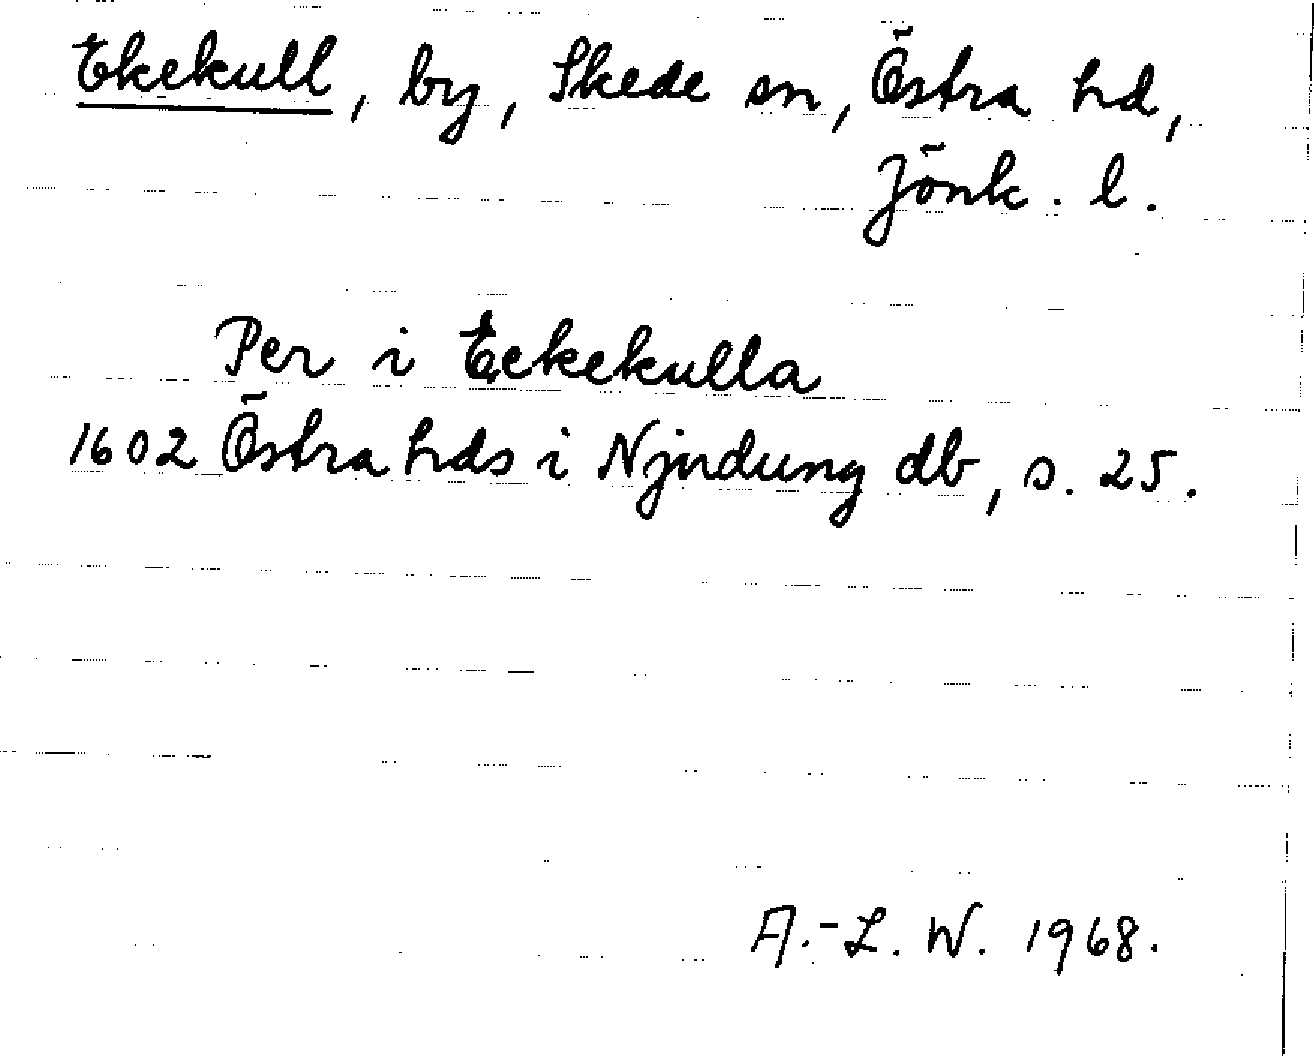 Ekekull, by, Skede sn, Östra hd,
Jönk. l.
Per i Eekekulla
1602 Östra hds i Njudung db, s. 25.
A.-L. W. 1968.